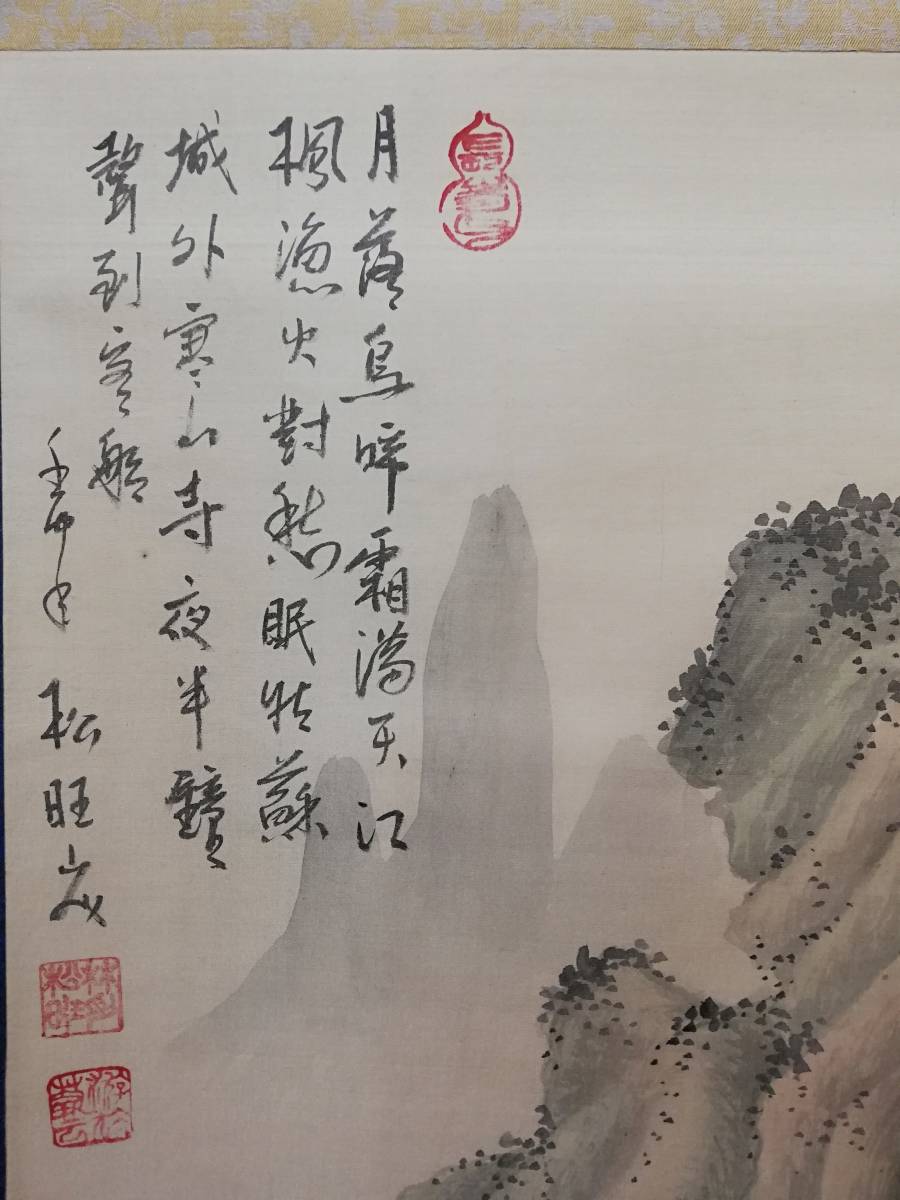 月落烏啼霜滿天江
楓漁火對愁眠姑蘇
城外寒山寺夜半鐘
聲到客船
壬申年 松旺